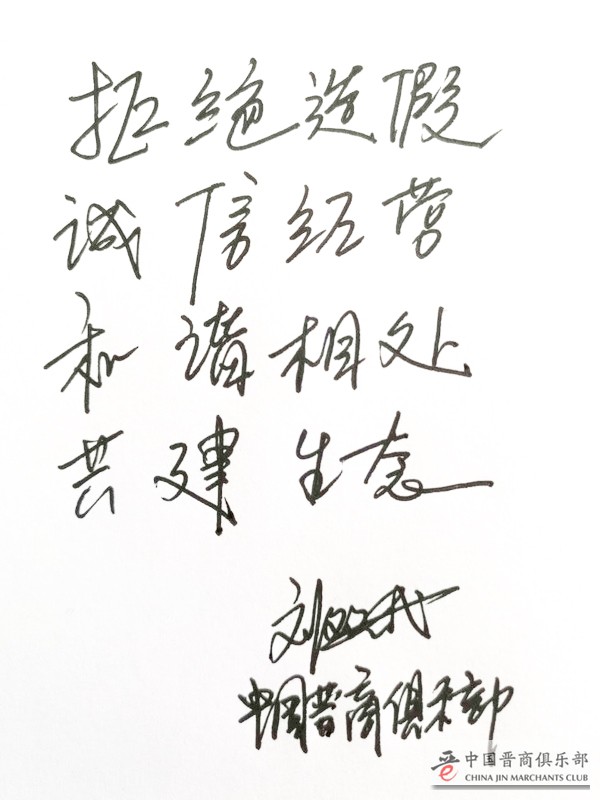 拒绝造假
诚信经营
和谐相处
共建生态
刘双
中国晋商俱乐部
中国晋商俱乐部
CHINA JIN MARCHANTS CLUB